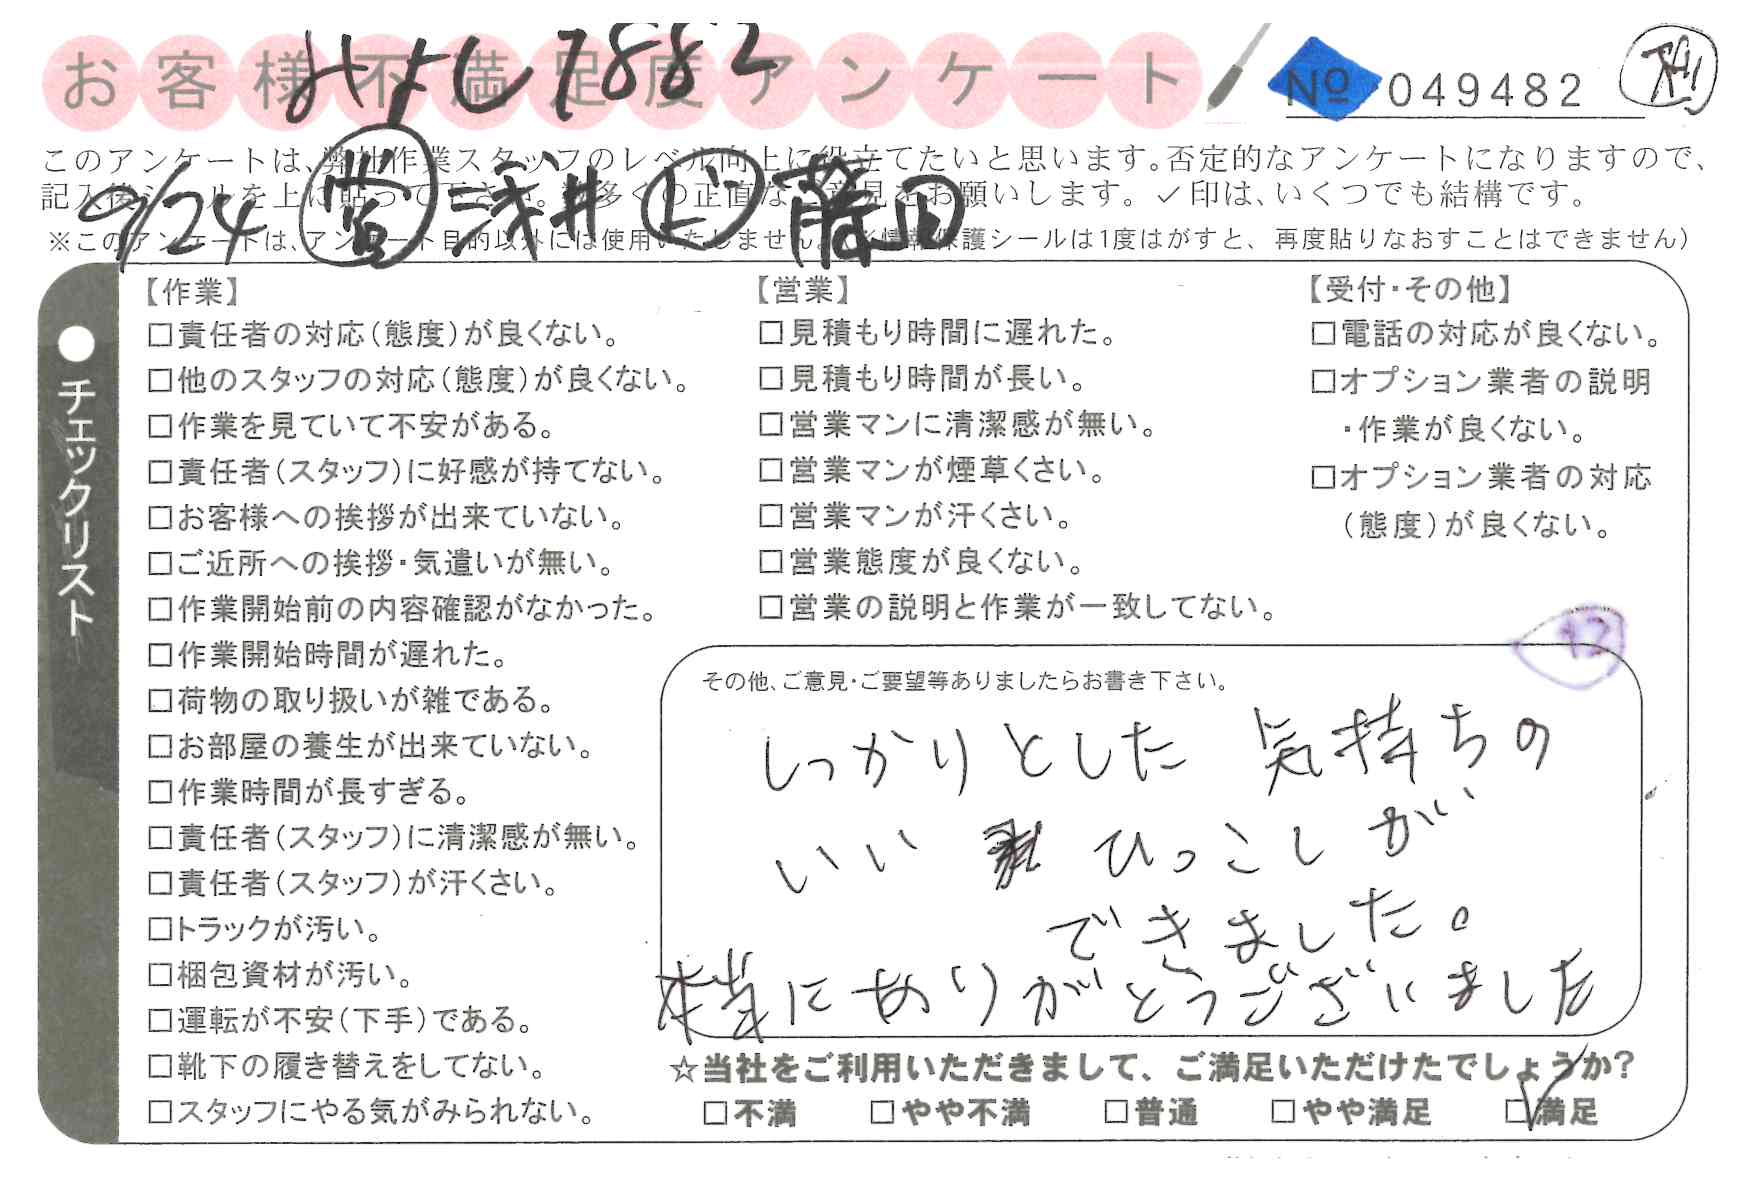 お客様不満足度アンケート
みよし7882
№ 049482
このアンケートは、弊社作業スタッフのレベル向上に役立てたいと思います。否定的なアンケートになりますので、
記入後シールを上に貼って下さい。数多くの正直な意見をお願いします。✓印は、いくつでも結構です。
9/24 営 浅井 ド 藤田
※このアンケートは、アンケート目的以外には使用いたしません。(※情報保護シールは1度はがすと、再度貼りなおすことはできません)
●チェックリスト
【作業】
□責任者の対応(態度)が良くない。
□他のスタッフの対応(態度)が良くない。
□作業を見ていて不安がある。
□責任者(スタッフ)に好感が持てない。
□お客様への挨拶が出来ていない。
□ご近所への挨拶・気遣いが無い。
□作業開始前の内容確認がなかった。
□作業開始時間が遅れた。
□荷物の取り扱いが雑である。
□お部屋の養生が出来ていない。
□作業時間が長すぎる。
□責任者(スタッフ)に清潔感が無い。
□責任者(スタッフ)が汗くさい。
□トラックが汚い。
□梱包資材が汚い。
□運転が不安(下手)である。
□靴下の履き替えをしてない。
□スタッフにやる気がみられない。
【営業】
□見積もり時間に遅れた。
□見積もり時間が長い。
□営業マンに清潔感が無い。
□営業マンが煙草くさい。
□営業マンが汗くさい。
□営業態度が良くない。
□営業の説明と作業が一致してない。
【受付・その他】
□電話の対応が良くない。
□オプション業者の説明
・作業が良くない。
□オプション業者の対応
(態度)が良くない。
12
その他、ご意見・ご要望等ありましたらお書き下さい。
しっかりとした 気持ちの
いい ひっこしが
できました。
本当にありがとうございました
☆当社をご利用いただきまして、ご満足いただけたでしょうか?
□不満 □やや不満 □普通 □やや満足 ☑満足